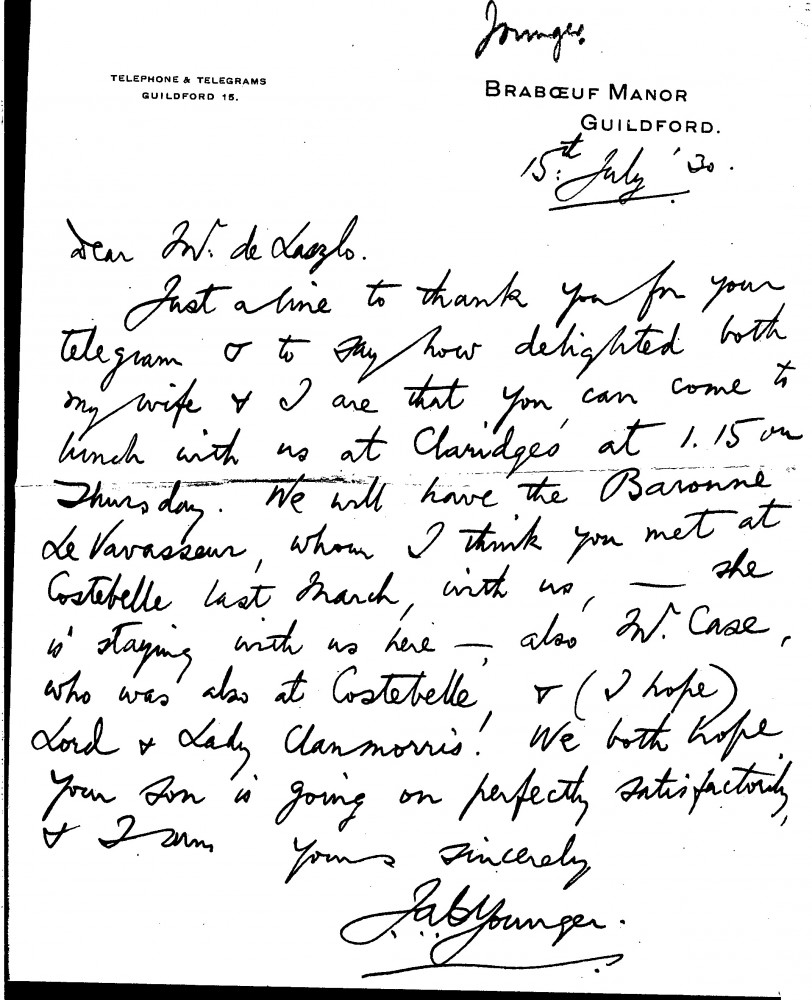 Younger.
TELEPHONE & TELEGRAMS
GUILDFORD 15.
BRABŒUF MANOR
GUILDFORD.
15th July '30.
Dear Mr. de Laszlo.
Just a line to thank you for your
telegram & to say how delighted both
my wife & I are that you can come to
lunch with us at Claridges at 1.15 on
Thursday. We will have the Baronne
Le Vavasseur, whom I think you met at
Costebelle last March, with us, — she
is staying with us here —, also Mr. Case,
who was also at Costebelle, & (I hope)
Lord & Lady Clanmorris! We both hope
your son is going on perfectly satisfactorily,
& I am
yours sincerely
Younger.